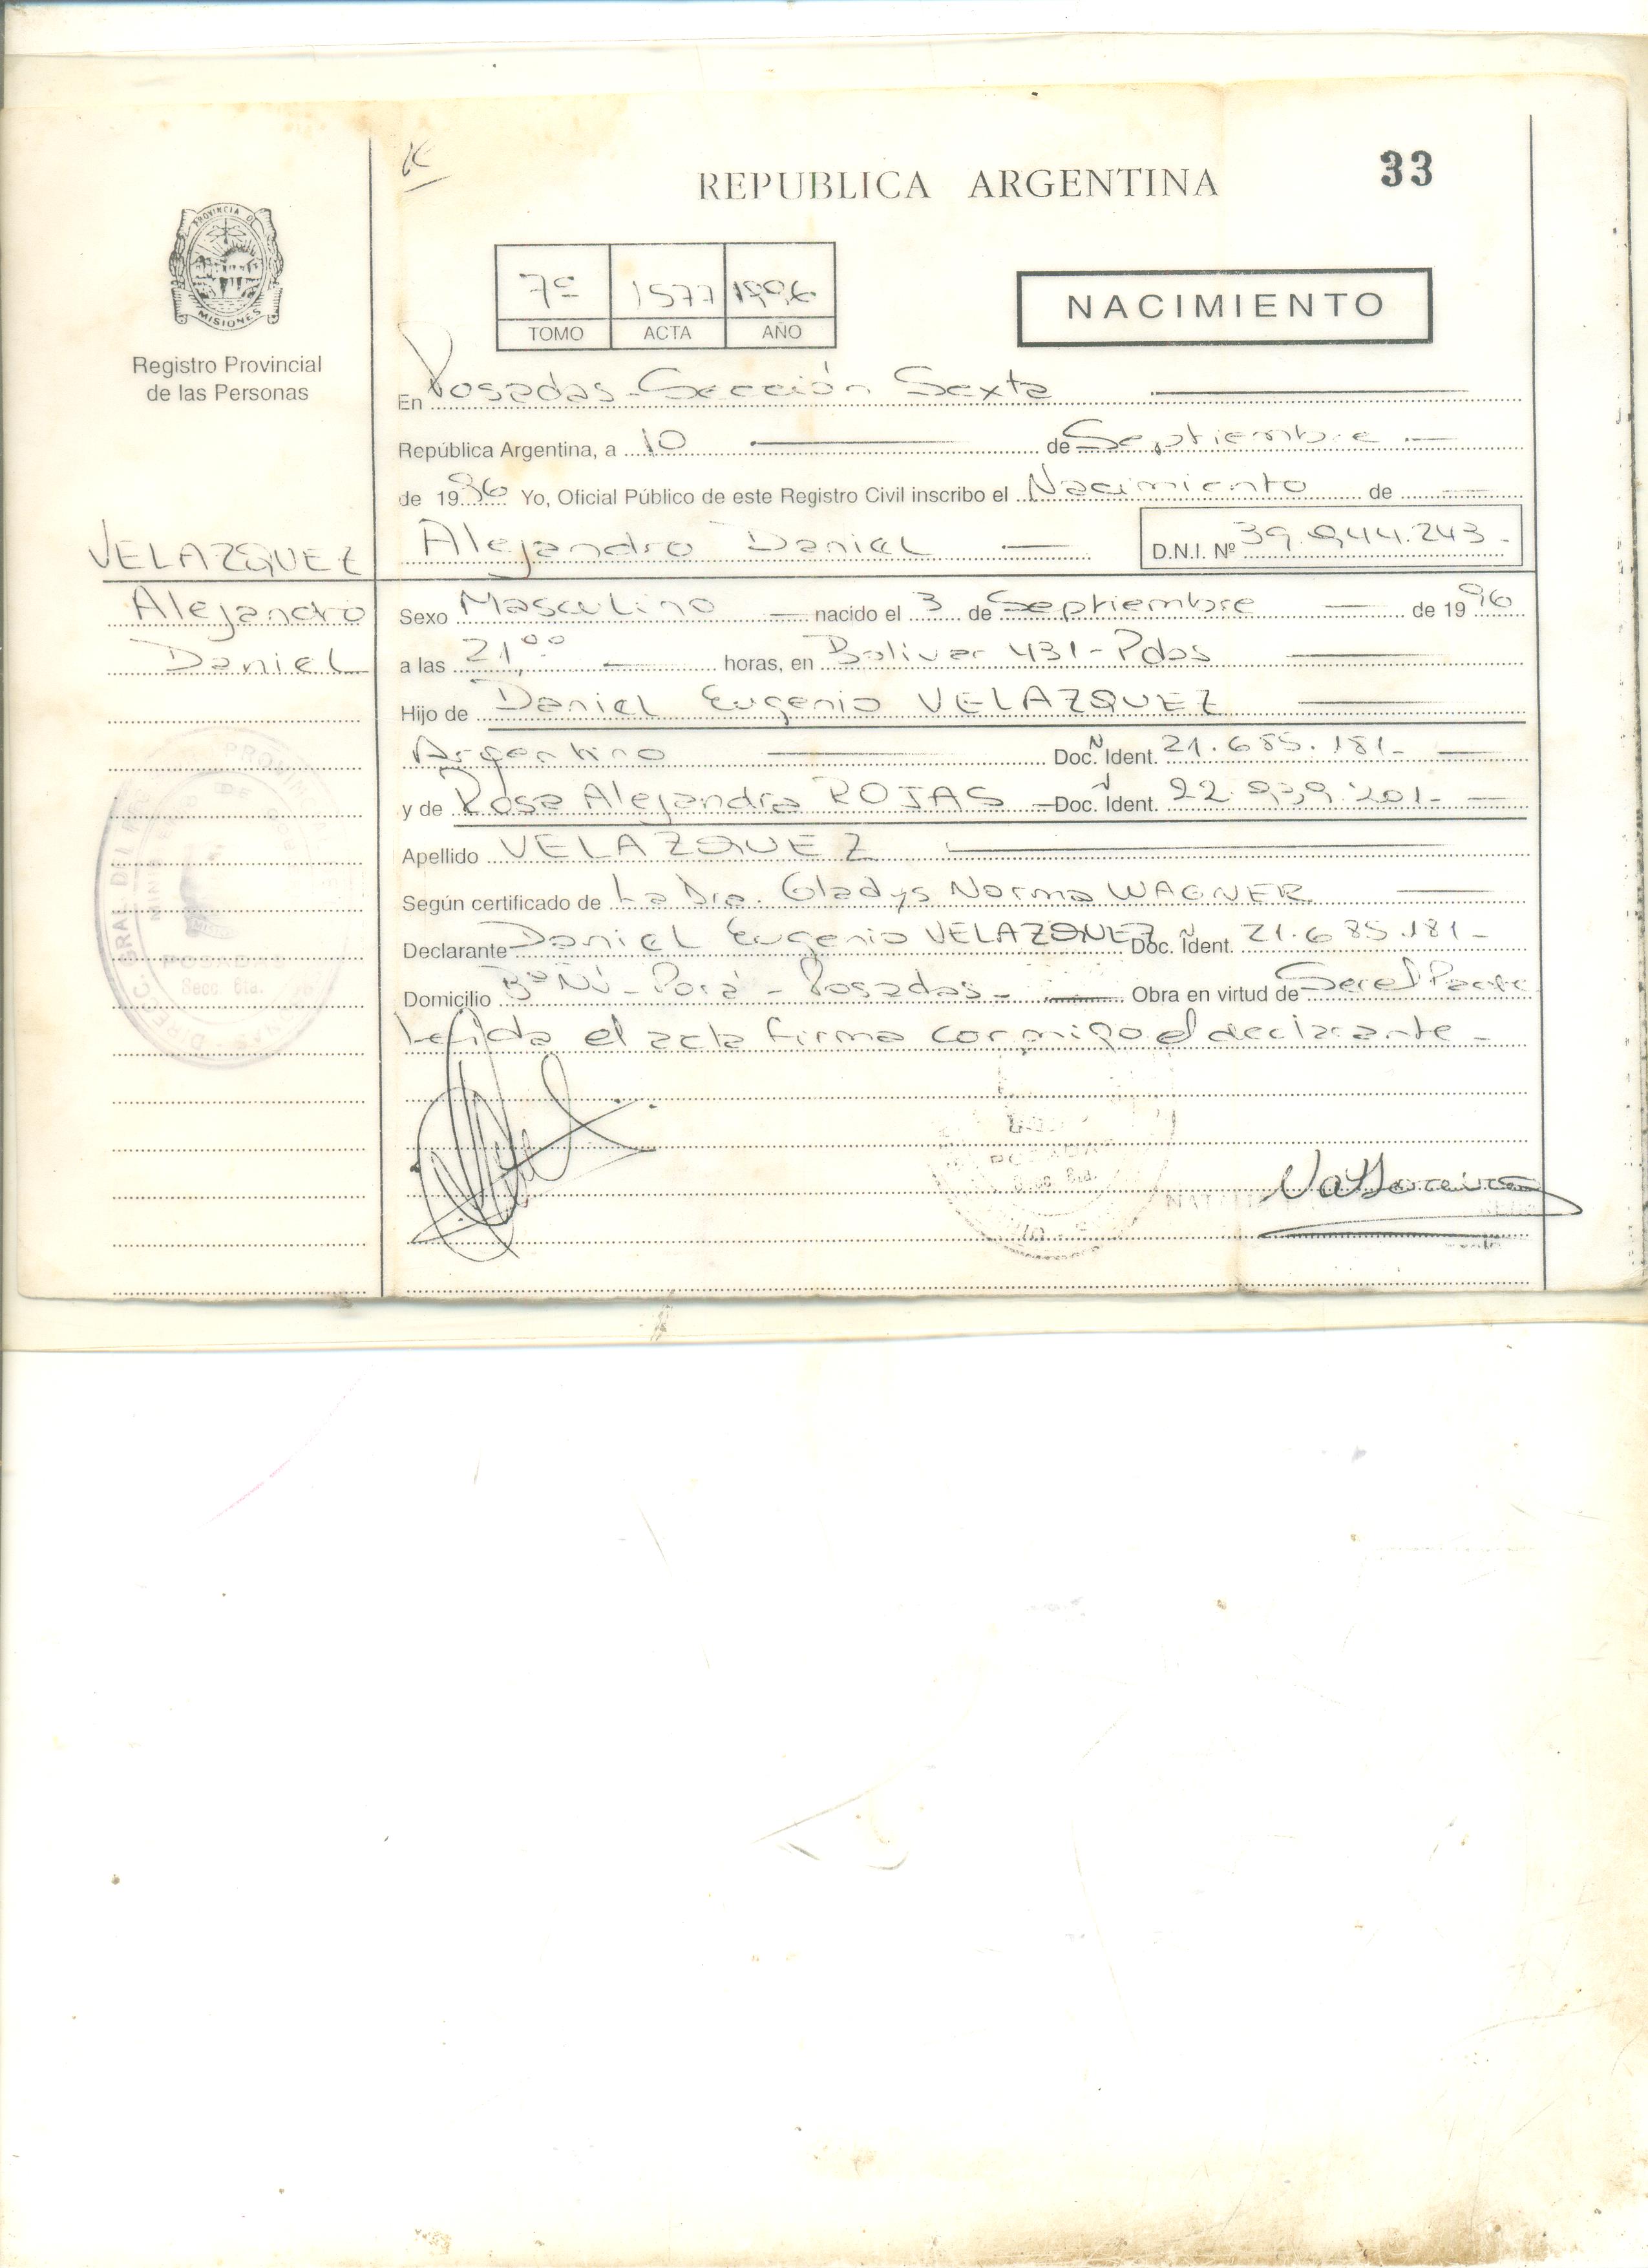 33
REPUBLICA ARGENTINA
PROVINCIA DE
MISIONES
7º 1577 1996
TOMO ACTA AÑO
NACIMIENTO
Registro Provincial
de las Personas
En Posadas Sección Sexta
República Argentina, a 10 de Septiembre
de 1996 Yo, Oficial Público de este Registro Civil inscribo el Nacimiento de
Alejandro Daniel D.N.I. Nº 39.944.243-
VELAZQUEZ
Alejandro
Daniel
Sexo Masculino nacido el 3 de Septiembre de 1996
a las 21,00 horas, en Bolivar 431-Pdas
Hijo de Daniel Eugenio VELAZQUEZ
Argentino Doc. Ident. 21.685.181-
y de Rosa Alejandra ROJAS Doc. Ident. 22.939.201-
Apellido VELAZQUEZ
Según certificado de La Dra. Gladys Norma WAGNER
Declarante Daniel Eugenio VELAZQUEZ Doc. Ident. 21.685.181-
Domicilio Bº Ñú-Porá-Posadas- Obra en virtud de Ser el Padre
Leída el acta firma conmigo el declarante-
POSADAS
Secc. 6ta.